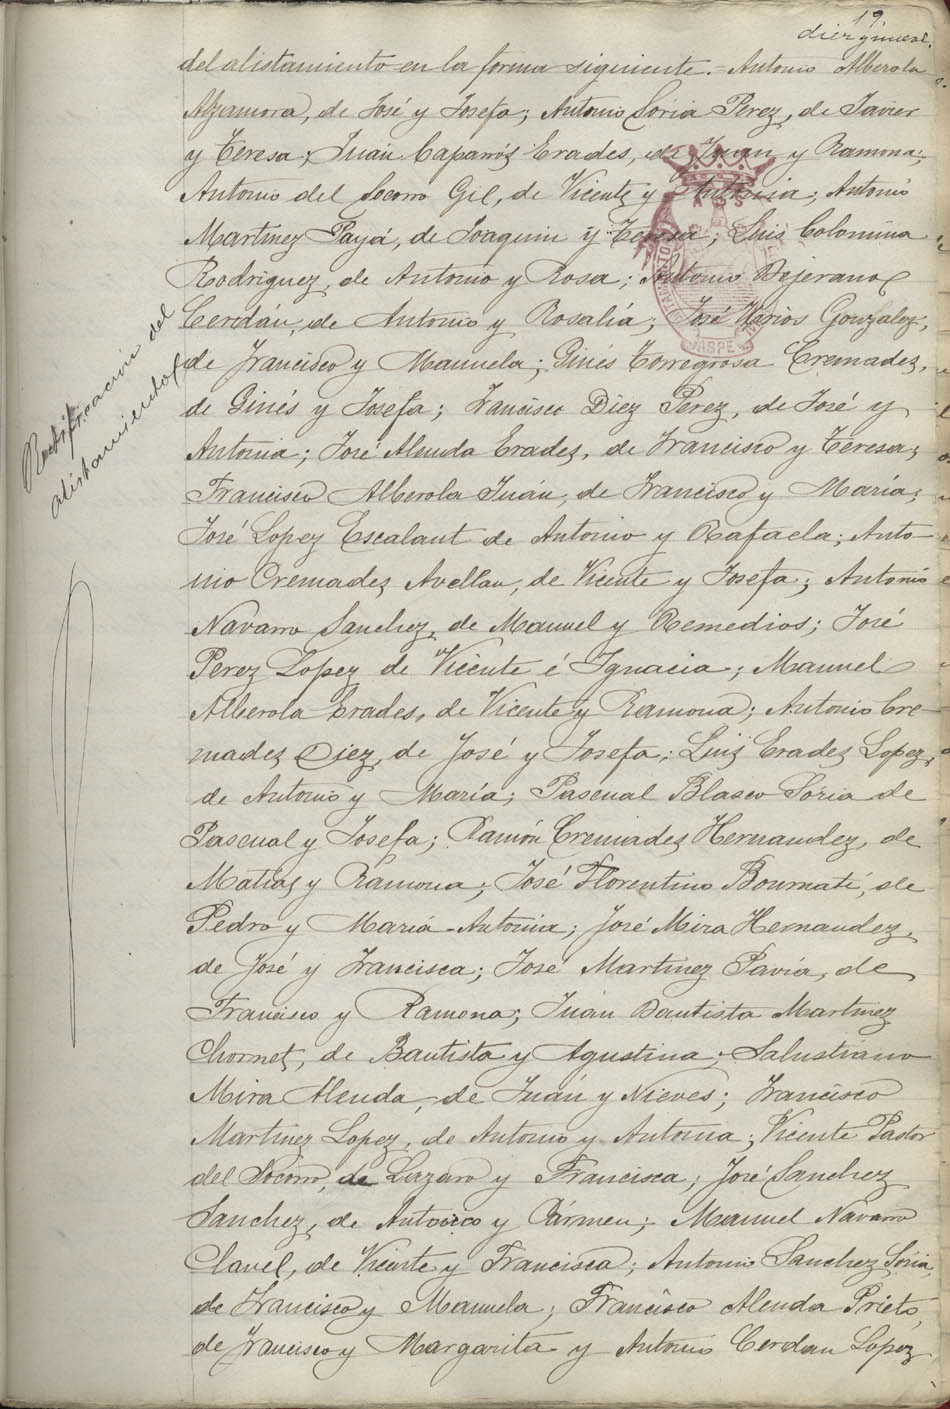 19
diez y nueve.
del alistamiento en la forma siguiente.- Antonio Alberola
Alzamora, de José y Josefa; Antonio Soria Perez, de Javier
y Teresa; Juan Caparrós Erades, de Juan y Ramona;
Antonio del Socorro Gil, de Vicente y Antonia; Antonio
Martinez Payá, de Joaquin y Teresa; Luis Colomina
Rodriguez, de Antonio y Rosa; Antonio Bejerano
Cerdán, de Antonio y Rosalía; José Gonzalez,
de Francisco y Manuela; Ginés Torregrosa Cremades,
de Ginés y Josefa; Francisco Diez Perez, de José y
Antonia; José Alenda Erades, de Francisco y Teresa;
Francisco Alberola Juán, de Francisco y María;
José Lopez Escalant de Antonio y Rafaela; Anto-
nio Cremades Avellan, de Vicente y Josefa; Antonio
Navarro Sanchez, de Manuel y Remedios; José
Perez Lopez de Vicente é Ignacia; Manuel
Alberola Erades, de Vicente y Ramona; Antonio Cre-
mades Diez, de José y Josefa; Luis Erades Lopez,
de Antonio y María; Pascual Blasco Soria de
Pascual y Josefa; Ramón Cremades Hernandez, de
Matías y Ramona; José Florentino Boumati, de
Pedro y María-Antonia; José Mira Hernandez,
de José y Francisca; José Martinez Pavía, de
Francisco y Ramona; Juán Bautista Martinez
Chornet, de Bautista y Agustina; Salustiano
Mira Alenda, de Juán y Nieves; Francisco
Martinez Lopez, de Antonio y Antonia; Vicente Pastor
del Socorro, de Lázaro y Francisca; José Sanchez
Sanchez, de Antonio y Cármen; Manuel Navarro
Clavel, de Vicente y Francisca; Antonio Sanchez Soria,
de Francisco y Manuela; Francisco Alenda Prieto,
de Francisco y Margarita y Antonio Cerdan Lopez
Rectificación del
alistamiento